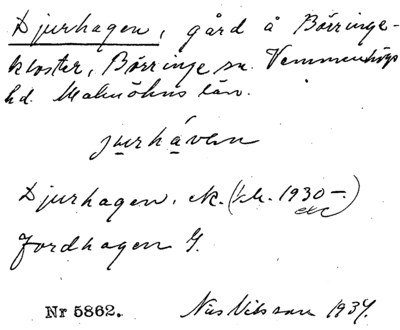 Djurhagen, gård å Börringe-
kloster, Börringe sn. Vemmenhögs
hd. Malmöhus län.
jurháven
Djurhagen, ek. (1930-.)
Jordhagen G.
Nr 5862. Nils Nilsson 1937.